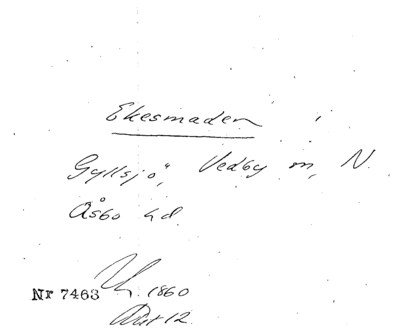 Ekesmaden i
Gyllsjö, Vedby m, N.
Åsbo hd.
Nr 7463 1860
Akt 12